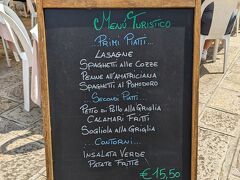 Menù Turistico
...Primi Piatti...
Lasagne
Spaghetti alle Cozze
Penne all'amatriciana
Spaghetti al Pomodoro
Secondi Piatti...
Petto di Pollo alla Griglia
Calamari Fritti
Sogliola alla Griglia
...Contorni...
Insalata Verde
Patate Fritte
€15,50